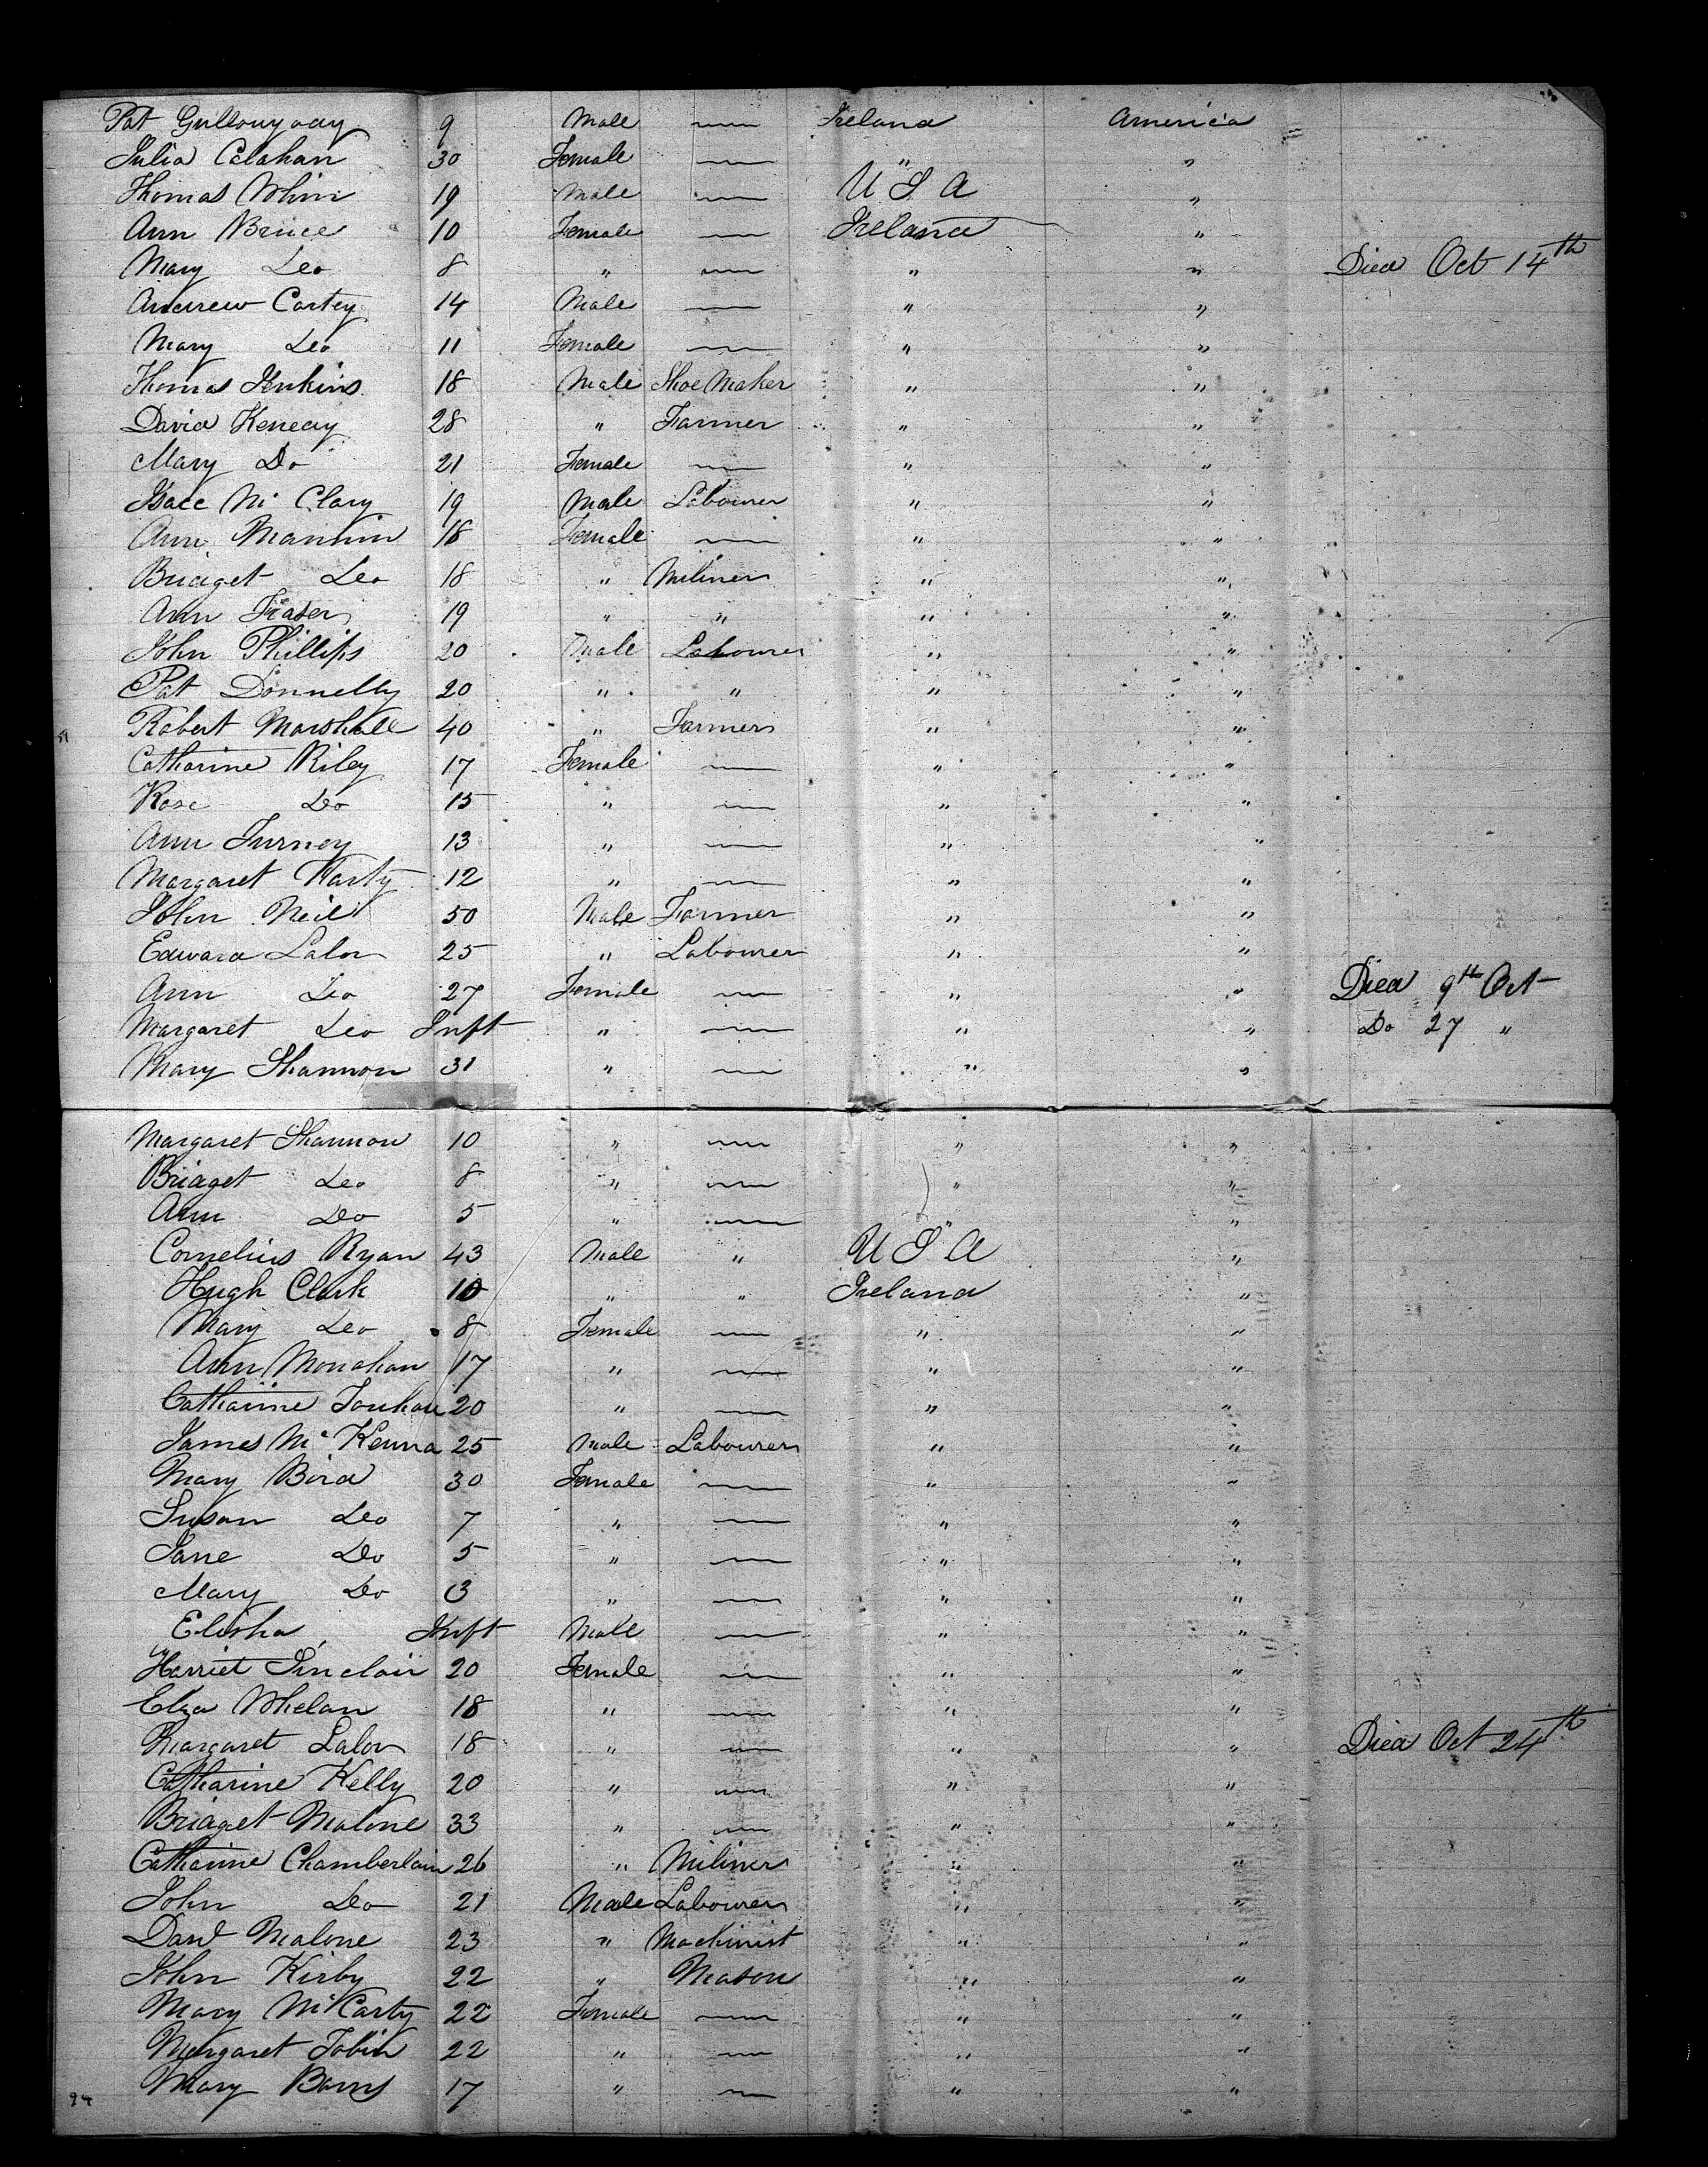 Pat 9 Male — Ireland America
Julia Calahan 30 Female — " "
Thomas Whim 19 Male — U S A "
Ann Bruce 10 Female — Ireland "
Mary Do 8 " — " " Died Oct 14th
Andrew Cartey 14 Male — " "
Mary Do 11 Female — " "
Thomas Jenkins 18 Male Shoe Maker " "
David Kenedy 28 " Farmer " "
Mary Do 21 Female — " "
Isaac Mc Clary 19 Male Labourer " "
Ann Mannin 18 Female — " "
Bridget Do 18 " Miliner " "
Ann Frater 19 " " " "
John Phillips 20 Male Labourer " "
Pat Donnelly 20 " " " "
Robert Marshall 40 " Farmer " "
Catharine Riley 17 Female — " "
Rose Do 15 " — " "
Ann Turney 13 " — " "
Margaret Harty 12 " — " "
John Neil 50 Male Farmer " "
Edward Lalor 25 " Labourer " "
Ann Do 27 Female — " " Died 9th Oct
Margaret Do Inft " — " " Do 27 "
Mary Shannon 31 " — " "
Margaret Shannon 10 " — " "
Bridget Do 8 " — " "
Ann Do 5 " — " "
Cornelius Ryan 43 Male " U S A "
Hugh Clark 10 " " Ireland "
Mary Do 8 Female — " "
Ann Monahan 17 " — " "
Catharine 20 " — " "
James Mc Kenna 25 Male Labourer " "
Mary Bird 30 Female — " "
Susan Do 7 " — " "
Jane Do 5 " — " "
Mary Do 3 " — " "
Elisha Inft Male — " "
Harriet Sinclair 20 Female — " "
Elza Whelan 18 " — " "
Margaret Lalor 18 " — " " Died Oct 24th
Catharine Kelly 20 " — " "
Bridget Malone 33 " — " "
Catharine Chamberlain 26 " Miliner " "
John Do 21 Male Labourer " "
Danl Malone 23 " Machinist " "
John Kirby 22 " Mason " "
Mary McCarty 22 Female — " "
Margaret Tobin 22 " — " "
Mary Barns 17 " — " "